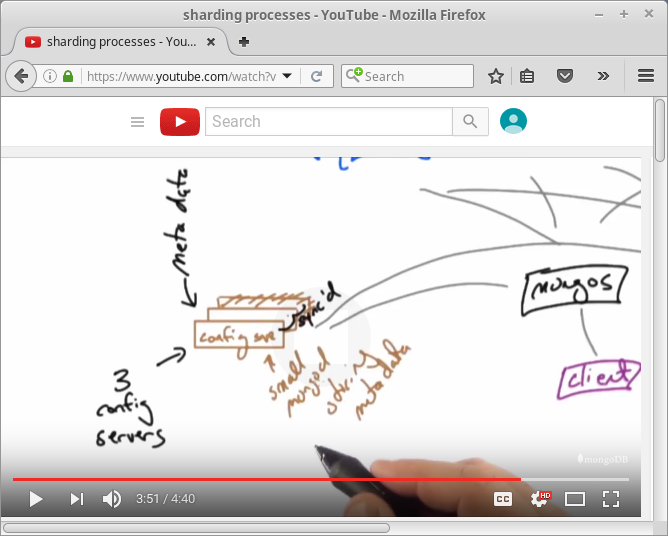 sharding processes - YouTube - Mozilla Firefox
sharding processes - You...
https://www.youtube.com/watch?v
Search
Search
meta data
sync'd
mongos
config svr
small
mongod
storing
meta data
client
3
config
servers
mongoDB
3:51 / 4:40
CC
HD